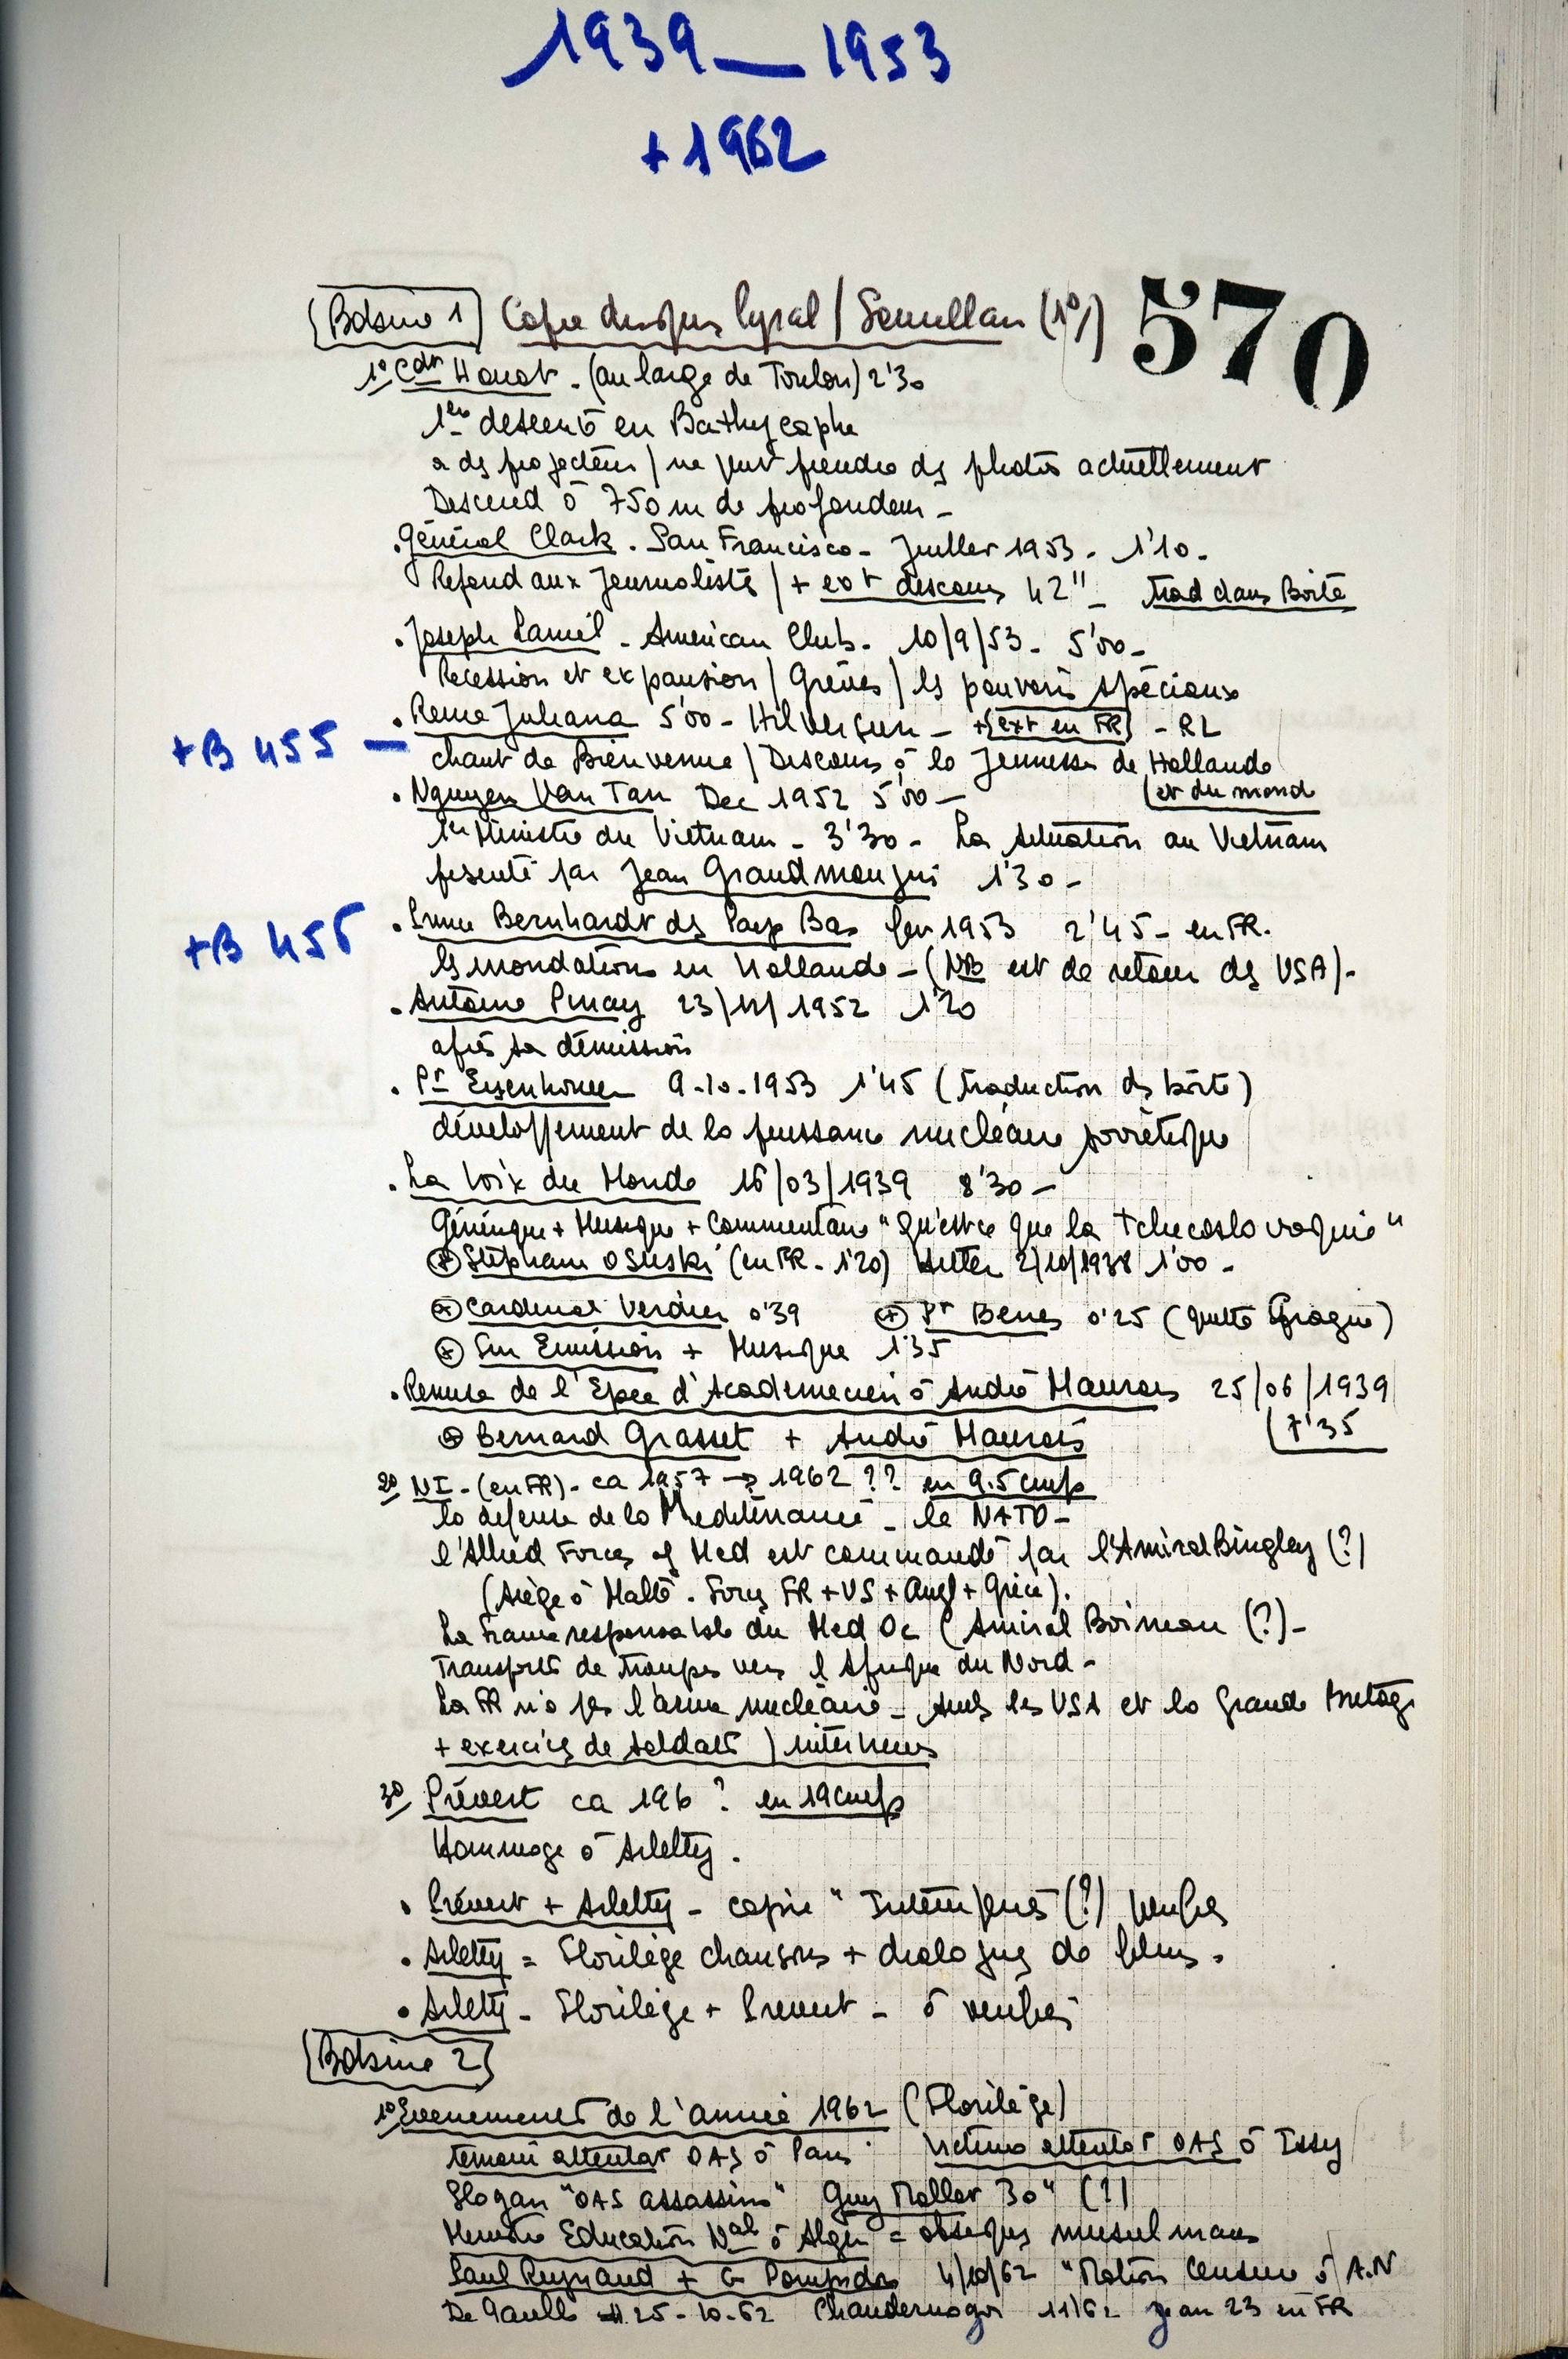 1939 — 1953
+ 1962
570
Bobine 1 Copie disques Pyral / (1°)
1° Cdt Houot - (au large de Toulon) 2'30
1ère descente en Bathyscaphe
a des projecteurs / ne peut prendre des photos actuellement
Descend à 750 m de profondeur -
. Général Clark. San Francisco - Juillet 1953 - 1'10 -
Répond aux journalistes / + ext discours 42" - trad dans Boîte
. Joseph Laniel - American Club. 10/9/53 - 5'00 -
Récession et expansion / Grèves / les pouvoirs spéciaux
+B 455 —
. Reine Juliana 5'00 - Hilversum - + ext en FR - RL
chant de Bienvenue / Discours à la jeunesse de Hollande
(et du monde
. Nguyen Van Tan Dec 1952 5'00 -
1er Ministre du Vietnam - 3'30 - La situation au Vietnam
présenté par Jean Grandmougin 1'30 -
+B 455
. Prince Bernhardt des Pays Bas fev 1953 2'45 - en FR.
les inondations en Hollande - (NB est de retour des USA) -
. Antoine Pinay 23/12/1952 1'20
après sa démission
. Pt Eisenhower 9-10-1953 1'45 (traduction ds boîte)
développement de la puissance nucléaire soviétique
. La Voix du Monde 16/03/1939 8'30 -
Générique + Musique + Commentaire "Qu'est ce que la Tchecoslovaquie"
+ Stephane Osuski (en FR - 1'20) Hitler 2/10/1938 1'00 -
+ Cardinal Verdier 0'39 + Pt Benes 0'25 (quitte Prague)
+ Fin Emission + Musique 1'35
. Remise de l'Epée d'Academicien à André Maurois 25/06/1939
(7'35
+ Bernard Grasset + André Maurois
2° NI - (en FR) - ca 1957 → 1962 ?? en 9.5 cm/s
la defense de la Mediterranée - le NATO -
l'Allied Forces of Med est commandé par l'Amiral Bingley (?)
(siège à Malte. Forces FR + US + Angl + Grèce).
La France responsable du Med Oc (Amiral Boineau (?) -
Transports de troupes vers l'Afrique du Nord -
La FR n'a pas l'arme nucléaire - seuls les USA et la Grande Bretagne
+ exercices de soldats / interviews
3° Prévert ca 196 ? en 19 cm/s
Hommage à Arletty .
. Prévert + Arletty - copie " (?)
. Arletty = Florilège chansons + dialogues de films .
. Arletty - Florilège + Prevert - à verifier
Bobine 2
1° Evenements de l'année 1962 (Florilège)
temoin attentat OAS à Paris Victime attentat OAS à Issy
Slogan "OAS assassins" Guy Mollet 30" (?)
Ministre Education Nale à Alger = obsèques musulmans
Paul Reynaud + G Pompidou 4/10/62 "Motion Censure à A.N
De Gaulle 25-10-62 Chandernagor 11/62 Jean 23 en FR